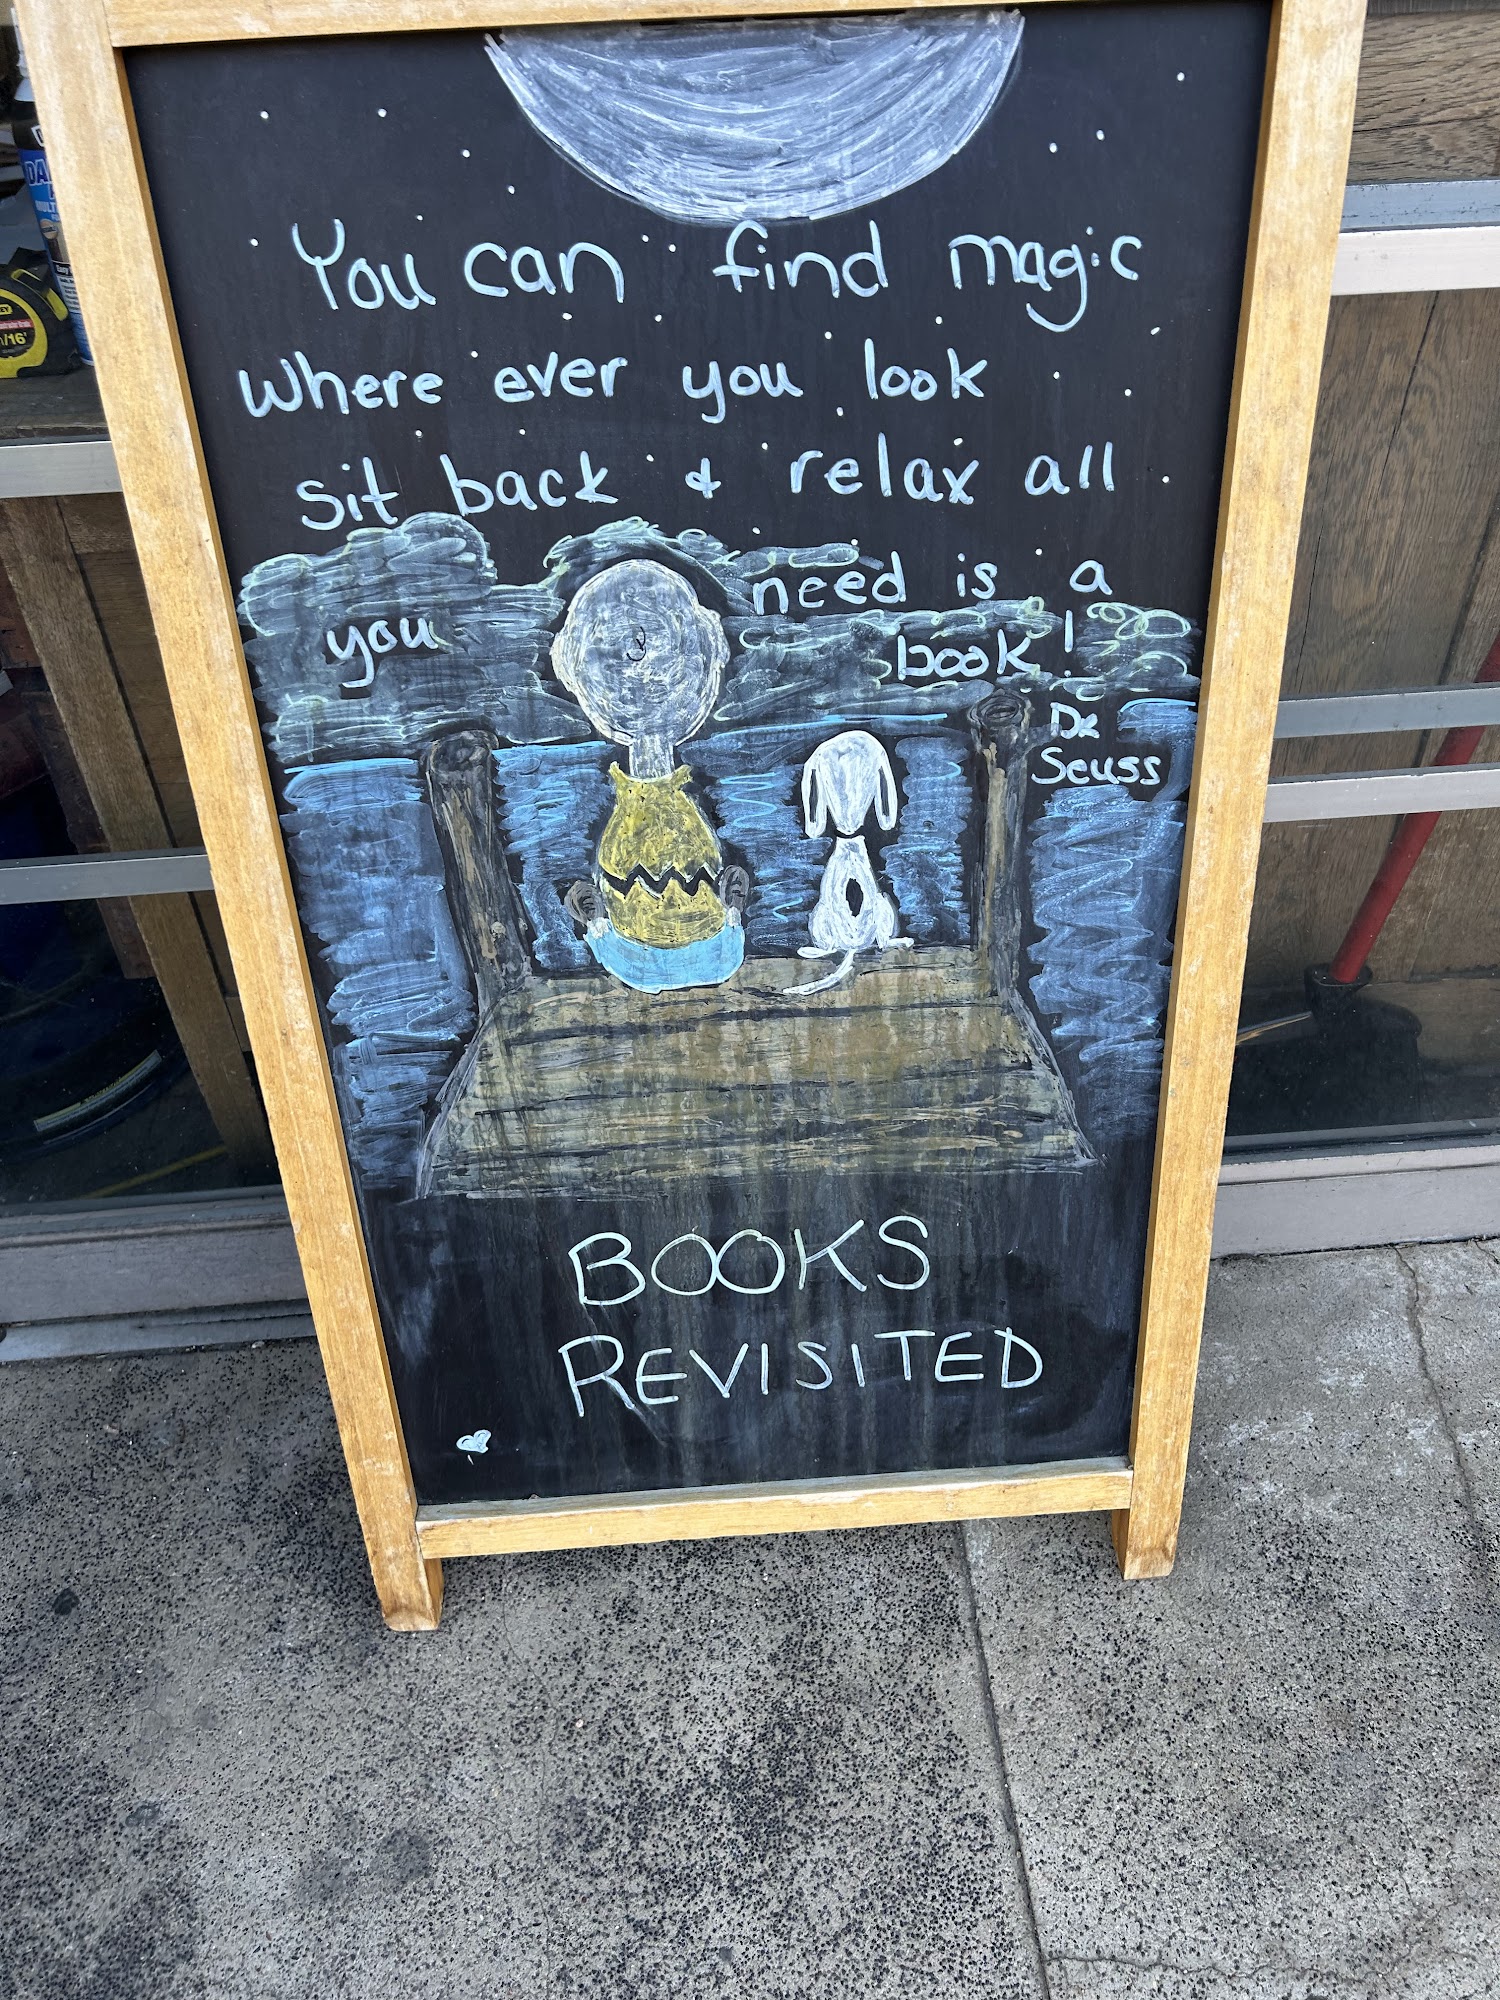 You can find magic
Where ever you look
sit back & relax all
you need is a
book!
Dr.
Seuss
BOOKS
REVISITED
DA
1/16'